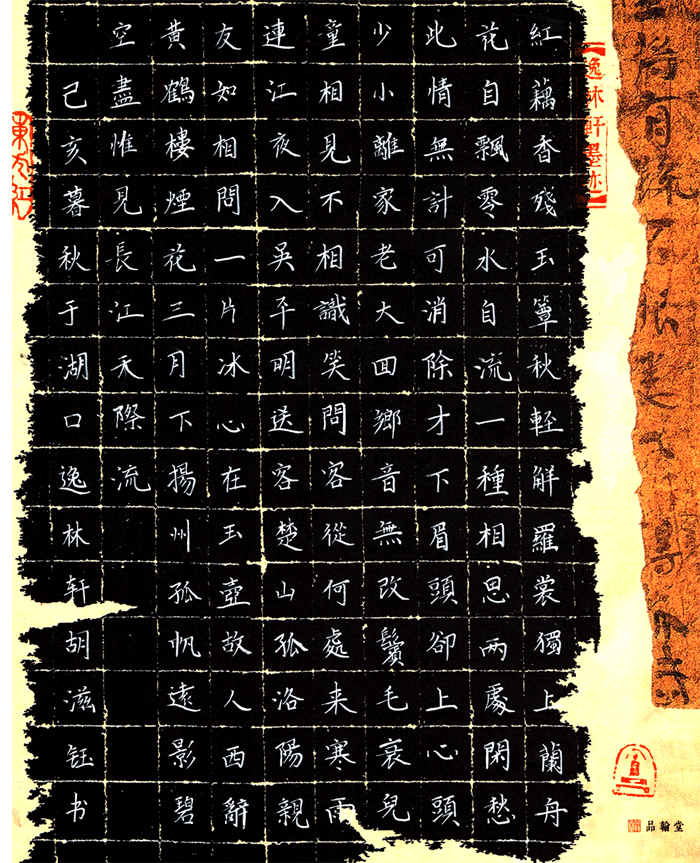 【逸林軒墨迹】
紅藕香殘玉簟秋輕解羅裳獨上蘭舟
花自飄零水自流一種相思兩處閑愁
此情無計可消除才下眉頭卻上心頭
少小離家老大囬鄉音無改鬢毛衰兒
童相見不相識笑問客從何處来寒雨
連江夜入吳平明送客楚山孤洛陽親
友如相問一片冰心在玉壺故人西辭
黃鶴樓煙花三月下揚州孤帆遠影碧
空盡惟見長江天際流
己亥暮秋于湖口逸林軒胡滋钰书
品翰堂